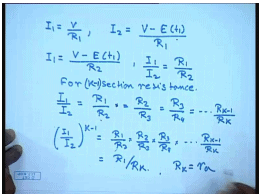 I₁ = V/R₁ , I₂ = (V - E(t₁))/R₁ .
I₁ = (V - E(t₁))/R₂ , I₁/I₂ = R₁/R₂
For (K-1) section resistance.
I₁/I₂ = R₁/R₂ = R₂/R₃ = R₃/R₄ = ... R_{K-1}/R_K
(I₁/I₂)^{K-1} = R₁/R₂ · R₂/R₃ · R₃/R₄ , ... R_{K-1}/R_K
= R₁/R_K . R_K = r_a